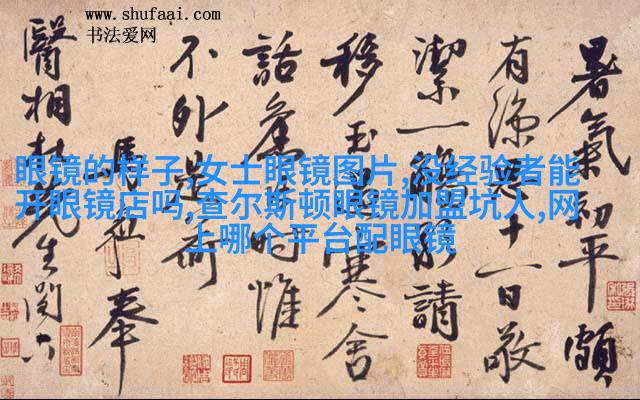 www.shufaai.com
书法爱网
眼镜的样子,女士眼镜图片,没经验者能
开眼镜店吗,查尔斯顿眼镜加盟坑人,网
上哪个平台配眼镜
暑氣初平頗
有涼思十一日敬
潔一觴 請
移玉 舍
話舊 時惟
不外是荷
奉
醫相杜先生閣下